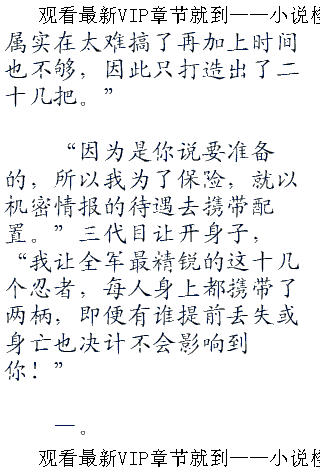 观看最新VIP章节就到——小说
属实在太难搞了再加上时间
也不够，因此只打造出了二
十几把。”
“因为是你说要准备
的，所以我为了保险，就以
机密情报的待遇去携带配
置。”三代目让开身子，
“我让全军最精锐的这十几
个忍者，每人身上都携带了
两柄，即便有谁提前丢失或
身亡也决计不会影响到
你！”
一。
观看最新VIP章节就到——小说